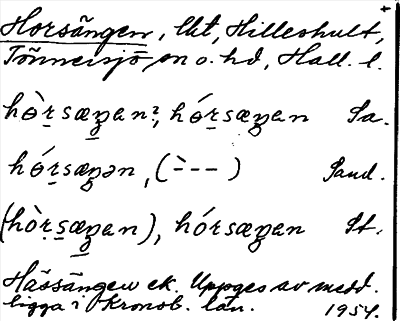 Horsängen, lkt, Hilleshult,
Tönnersjö sn o. hd, Hall. l.
hòr̲sæŋan?, hór̲sæŋan Sa.
hór̲sæŋən, (ˋ---) Sand.
(hòr̲s̲æŋan), hórsæŋan St.
Hässängen ek. Uppges av medd.
ligga i Kronob. län. 1954.